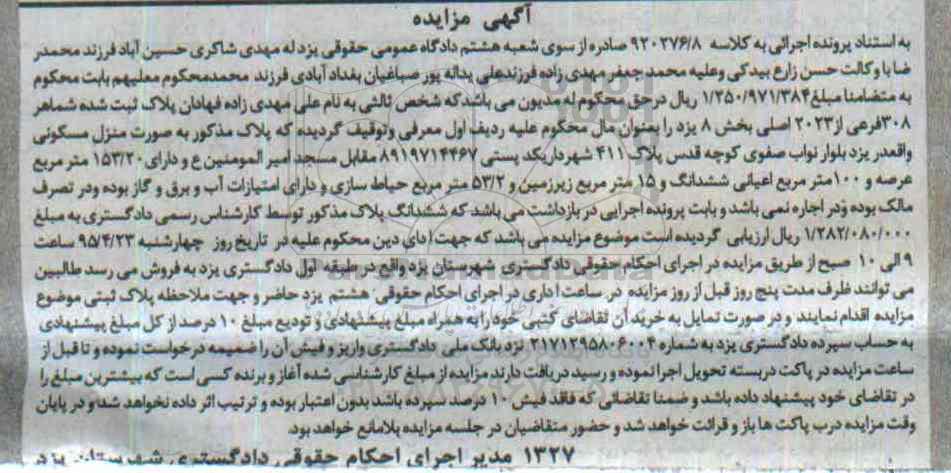 آگهی مزایده
به استناد پرونده اجرائی به کلاسه ۹۲۰۲۷۶/۸ صادره از سوی شعبه هشتم دادگاه عمومی حقوقی یزد له مهدی شاکری حسین آباد فرزند محمدر
ضا با وکالت حسن زارع بیدکی وعلیه محمد جعفر مهدی زاده فرزندعلی یداله پور صباغیان بغداد آبادی فرزند محمدمحکوم معلیهم بابت محکوم
به متضامنا مبلغ۱/۲۵۰/۹۷۱/۳۸۴ ریال درحق محکوم له مدیون می باشد که شخص ثالثی به نام علی مهدی زاده فهادان پلاک ثبت شده شماهر
۳۰۸فرعی از۲۰۲۳ اصلی بخش ۸ یزد را بعنوان مال محکوم علیه ردیف اول معرفی وتوقیف گردیده که پلاک مذکور به صورت منزل مسکونی
واقعدر یزد بلوار نواب صفوی کوچه قدس پلاک ۴۱۱ شهرداریکد پستی ۸۹۱۹۷۱۴۴۶۷ مقابل مسجد امیر المومنین ع و دارای ۱۵۳/۲۰ متر مربع
عرصه و ۱۰۰متر مربع اعیانی ششدانگ و ۱۵ متر مربع زیرزمین و ۵۳/۲ متر مربع حیاط سازی و دارای امتیازات آب و برق و گاز بوده ودر تصرف
مالک بوده ودر اجاره نمی باشد و بابت پرونده اجرایی در بازداشت می باشد که ششدانگ پلاک مذکور توسط کارشناس رسمی دادگستری به مبلغ
۱/۲۸۲/۰۸۰/۰۰۰ ریال ارزیابی گردیده است موضوع مزایده می باشد که جهت ادای دین محکوم علیه در تاریخ روز چهارشنبه ۹۵/۴/۲۳ ساعت
۹ الی ۱۰ صبح از طریق مزایده در اجرای احکام حقوقی دادگستری شهرستان یزد واقع در طبقه اول دادگستری یزد به فروش می رسد طالبین
می توانند ظرف مدت پنج روز قبل از روز مزایده در ساعت اداری در اجرای احکام حقوقی هشتم یزد حاضر و جهت ملاحظه پلاک ثبتی موضوع
مزایده اقدام نمایند و در صورت تمایل به خرید آن تقاضای کتبی خود را به همراه مبلغ پیشنهادی و تودیع مبلغ ۱۰ درصد از کل مبلغ پیشنهادی
به حساب سپرده دادگستری یزد به شماره ۲۱۷۱۲۹۵۸۰۶۰۰۴ نزد بانک ملی دادگستری واریز و فیش آن را ضمیمه درخواست نموده و تا قبل از
ساعت مزایده در پاکت دربسته تحویل اجرا نموده و رسید دریافت دارند مزایده از مبلغ کارشناسی شده آغاز و برنده کسی است که بیشترین مبلغ را
در تقاضای خود پیشنهاد داده باشد و ضمنا تقاضائی که فاقد فیش ۱۰ درصد سپرده باشد بدون اعتبار بوده و ترتیب اثر داده نخواهد شد و در پایان
وقت مزایده درب پاکت ها باز و قرائت خواهد شد و حضور متقاضیان در جلسه مزایده بلامانع خواهد بود.
۱۳۲۷ مدیر اجرای احکام حقوقی دادگستری شهرستان یزد